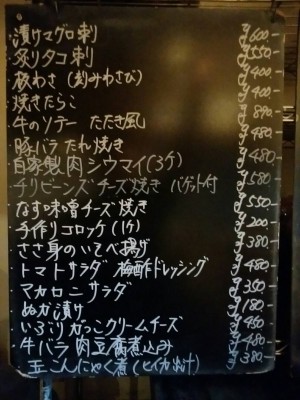 ・漬けマグロ刺 ¥600-
・炙りタコ刺 ¥550-
・板わさ(刻みわさび) ¥400-
・焼きたらこ ¥400-
・牛のソテー たたき風 ¥890
・豚バラ たれ焼き ¥480-
・自家製肉シウマイ(3ケ) ¥480-
・チリビーンズチーズ焼き バゲット付 ¥580
・なす味噌チーズ焼き ¥550-
・手作りコロッケ(1ケ) ¥200-
・ささ身のいそべ揚げ ¥380-
・トマトサラダ 梅酢ドレッシング ¥480-
・マカロニサラダ ¥350-
・ぬか漬け ¥180-
・いぶりがっこクリームチーズ ¥450-
・牛バラ肉豆腐煮込み ¥480-
・玉こんにゃく煮(ヒイカ出汁) ¥380-